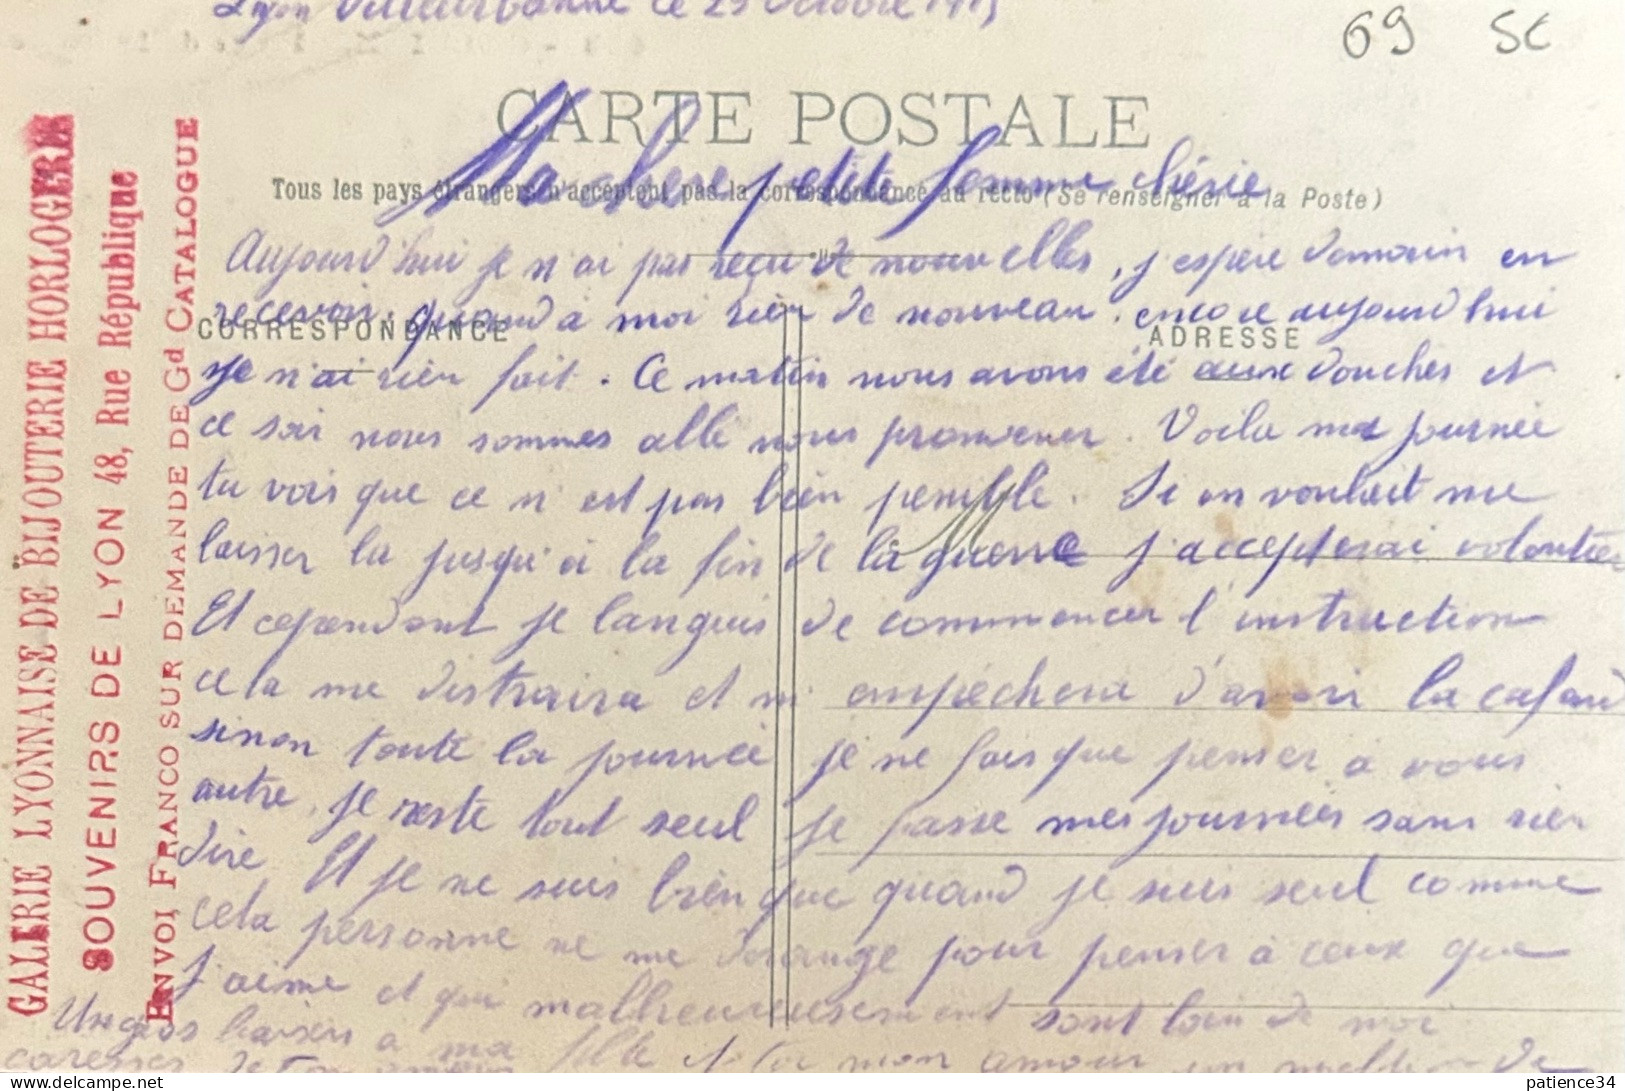 Lyon Villeurbanne le 25 Octobre 1915
69 SC
CARTE POSTALE
Ma chere petite femme chérie
Tous les pays étrangers n'acceptent pas la correspondance au recto (Se renseigner à la Poste)
Aujourd'hui je n'ai pas reçu de nouvelles, j'espère demain en
recevoir. quand à moi rien de nouveau. encore aujourd'hui
CORRESPONDANCE
ADRESSE
je n'ai rien fait. Ce matin nous avons été aux douches et
ce soir nous sommes allé nous promener. Voila ma journée
tu vois que ce n'est pas bien penible. Si on voulait me
laisser la jusqu'à la fin de la guerre j'accepterai volontier
Et cependant je languis de commencer l'instruction
cela me distraira et m'empéchera d'avoir la cafard
sinon toute la journée je ne fais que penser à vous
autre, je reste tout seul je passe mes journées sans rien
dire. Et je ne suis bien que quand je suis seul comme
cela personne ne me dérange pour penser à ceux que
j'aime et qui malheureusement sont loin de moi
Un gros baiser a ma fille et toi mon amour un million de
caresses de ton
GALERIE LYONNAISE DE BIJOUTERIE HORLOGERIE
SOUVENIRS DE LYON 48, Rue République
ENVOI FRANCO SUR DEMANDE DE Gd CATALOGUE
delcampe.net
patience34